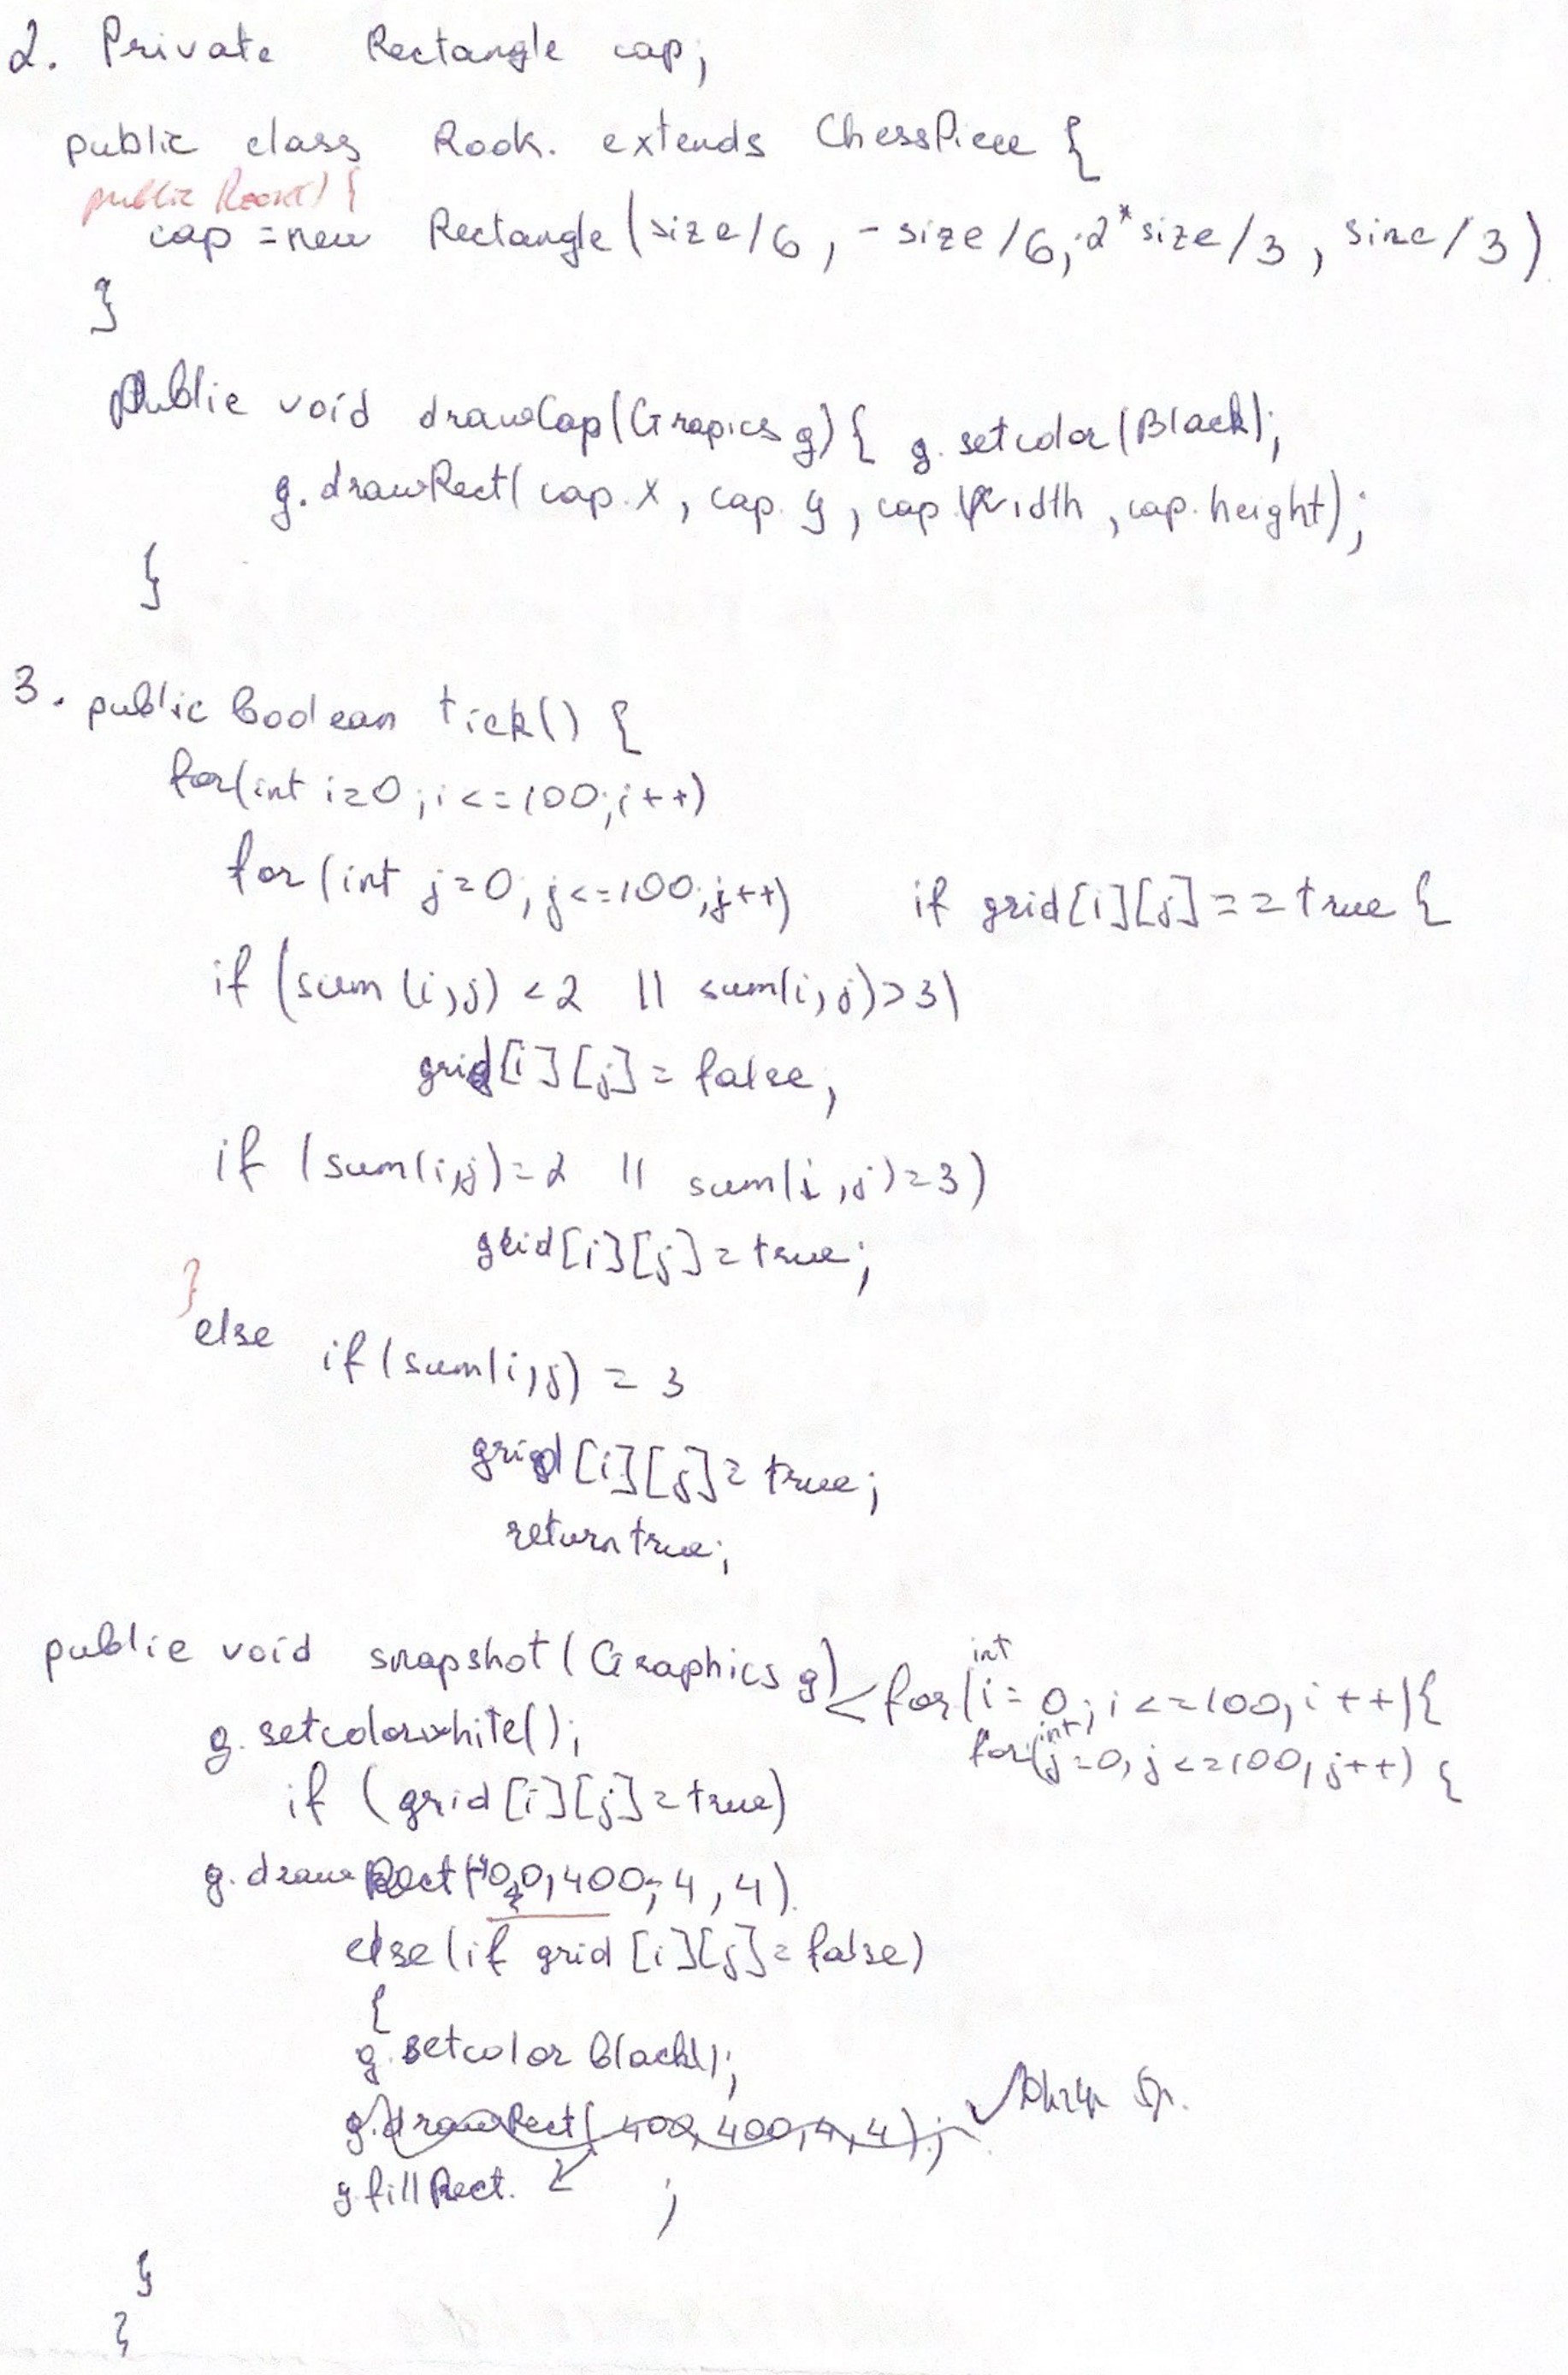 2. Private Rectangle cap;
public class Rook. extends ChessPiece {
public Rook() {
cap = new Rectangle(size/6, -size/6, 2*size/3, size/3)
}
Public void drawCap(Grapics g) { g.setcolor(Black);
g.drawRect(cap.x, cap.y, cap.Width, cap.height);
}
3. public boolean tick() {
for(int i=0; i<=100; i++)
for(int j=0; j<=100; j++) if grid[i][j]==true {
if (sum(i,j) <2 || sum(i,j)>3)
grid[i][j]=false;
if (sum(i,j)=2 || sum(i,j)=3)
grid[i][j]=true;
}
else if(sum(i,j) = 3
grid[i][j]=true;
return true;
public void snapshot(Graphics g) < for(int i=0; i<=100, i++){
g.setcolorwhite(); for(int j=0, j<=100, j++) {
if (grid[i][j]=true)
g.drawRect( 400, 4, 4)
else(if grid[i][j]=false)
{
g.setcolor black();
g.drawRect(400, 400, 4, 4);
g.fillRect. ;
}
}